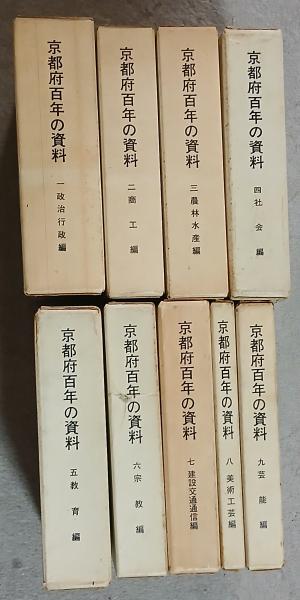 京都府百年の資料
一 政治行政編
京都府百年の資料
二 商工編
京都府百年の資料
三 農林水産編
京都府百年の資料
四 社会編
京都府百年の資料
五 教育編
京都府百年の資料
六 宗教編
京都府百年の資料
七 建設交通通信編
京都府百年の資料
八 美術工芸編
京都府百年の資料
九 芸能編